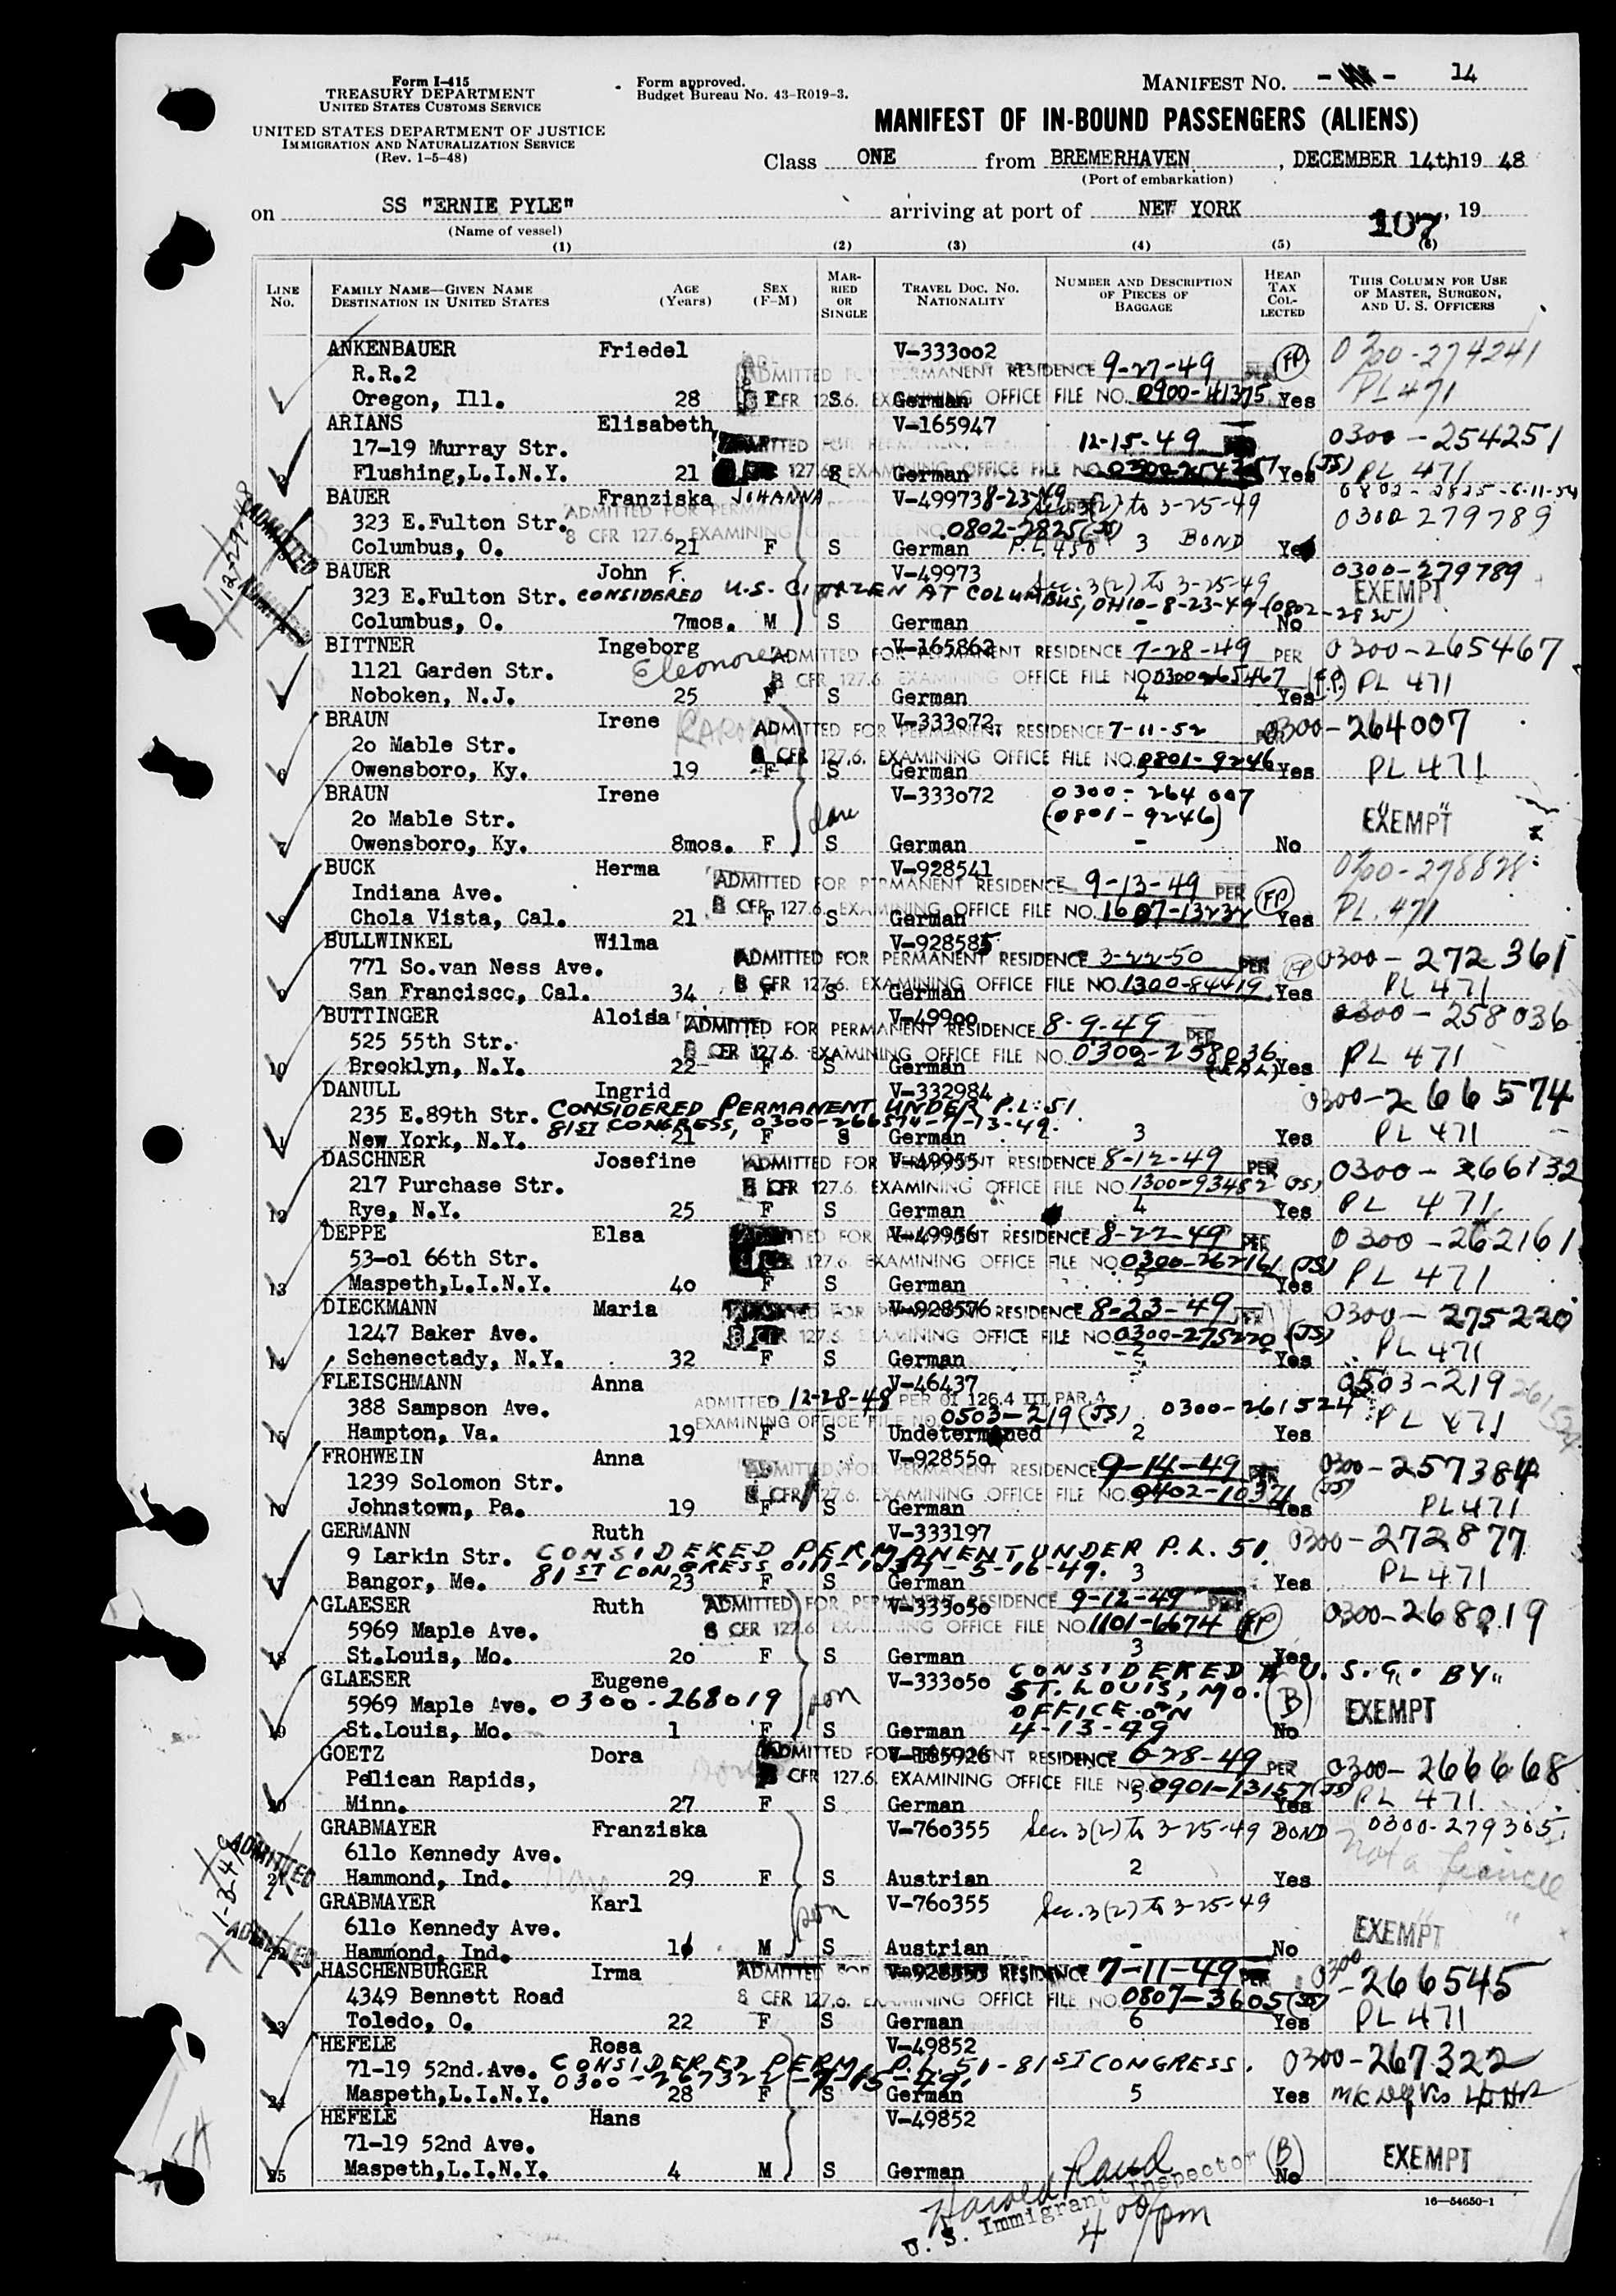 Form I-415
TREASURY DEPARTMENT
UNITED STATES CUSTOMS SERVICE
UNITED STATES DEPARTMENT OF JUSTICE
IMMIGRATION AND NATURALIZATION SERVICE
(Rev. 1-5-48)
Form approved.
Budget Bureau No. 43-R019-3.
MANIFEST No. 14
MANIFEST OF IN-BOUND PASSENGERS (ALIENS)
Class ONE from BREMERHAVEN, DECEMBER 14th 19 48
(Port of embarkation)
on SS "ERNIE PYLE" arriving at port of NEW YORK , 19
(Name of vessel)
107
(1) (2) (3) (4) (5) (6)
LINE No. FAMILY NAME—GIVEN NAME DESTINATION IN UNITED STATES AGE (Years) SEX (F-M) MARRIED OR SINGLE TRAVEL DOC. No. NATIONALITY NUMBER AND DESCRIPTION OF PIECES OF BAGGAGE HEAD TAX COLLECTED THIS COLUMN FOR USE OF MASTER, SURGEON, AND U. S. OFFICERS
ANKENBAUER Friedel V-333002 0300-274241
R.R.2 ADMITTED FOR PERMANENT RESIDENCE 9-27-49 FP PL 471
1 Oregon, Ill. 28 F S German 8 CFR 127.6. EXAMINING OFFICE FILE NO. 0900-41375 Yes
ARIANS Elisabeth V-165947 0300-254251
17-19 Murray Str. 12-15-49
2 Flushing,L.I.N.Y. 21 S German 127.6. EXAMINING OFFICE FILE NO. Yes (JS) PL 471
BAUER Franziska JOHANNA V-49973 8-23-49 Sec. 3(2) to 3-25-49 0802-2825-6-11-54
323 E.Fulton Str. ADMITTED FOR PERMANENT 0802-2825 (JS) 0300 279789
Columbus, O. 21 F S German P.L. 450 3 BOND Yes
8 CFR 127.6. EXAMINING
ADMITTED 12-29-48
BAUER John F. V-49973 Sec. 3(2) to 3-25-49 0300-279789
323 E.Fulton Str. CONSIDERED U.S. CITIZEN AT COLUMBUS, OHIO-8-23-49-(0802-2825) EXEMPT
Columbus, O. 7mos. M S German - No
BITTNER Ingeborg Eleonore V-165862 0300-265467
1121 Garden Str. ADMITTED FOR PERMANENT RESIDENCE 7-28-49 PER
Noboken, N.J. 25 F S German 8 CFR 127.6. EXAMINING OFFICE FILE NO. 0300-265467 4 Yes (F.P.) PL 471
BRAUN Irene V-333072 0300-264007
20 Mable Str. ADMITTED FOR PERMANENT RESIDENCE 7-11-52
6 Owensboro, Ky. 19 F S German 8 CFR 127.6. EXAMINING OFFICE FILE NO. 0801-9246 Yes PL 471
BRAUN Irene V-333072 0300-264007
20 Mable Str. (0801-9246) "EXEMPT"
7 Owensboro, Ky. 8mos. F S German - No
BUCK Herma V-928541 0300-278828
Indiana Ave. ADMITTED FOR PERMANENT RESIDENCE 9-13-49 PER FP
8 Chola Vista, Cal. 21 F S German 8 CFR 127.6. EXAMINING OFFICE FILE NO. 1607-13232 Yes PL.471
BULLWINKEL Wilma V-928585 0300-272361
771 So.van Ness Ave. ADMITTED FOR PERMANENT RESIDENCE 3-22-50 PER
9 San Francisco, Cal. 34 F S German 8 CFR 127.6. EXAMINING OFFICE FILE NO. 1300-84419 Yes PL 471
BUTTINGER Aloisia V-49900 0300-258036
525 55th Str. ADMITTED FOR PERMANENT RESIDENCE 8-9-49 PER
10 Brooklyn, N.Y. 22 F S German 8 CFR 127.6. EXAMINING OFFICE FILE NO. 0300-258036 Yes PL 471
DANULL Ingrid V-332984 0300-266574
235 E.89th Str. CONSIDERED PERMANENT UNDER P.L. 51
81ST CONGRESS, 0300-266574-7-13-49.
11 New York, N.Y. 21 F S German 3 Yes PL 471
DASCHNER Josefine V-49955 0300-266132
217 Purchase Str. ADMITTED FOR PERMANENT RESIDENCE 8-12-49 PER
12 Rye, N.Y. 25 F S German 8 CFR 127.6. EXAMINING OFFICE FILE NO. 1300-93482 (JS) 4 Yes PL 471
DEPPE Elsa V-49956 0300-262161
53-01 66th Str. FOR PERMANENT RESIDENCE 8-22-49 PER
13 Maspeth,L.I.N.Y. 40 F S German 127.6. EXAMINING OFFICE FILE NO. 0300-262161 (JS) Yes PL 471
DIECKMANN Maria V-928576 0300-275220
1247 Baker Ave. FOR PERMANENT RESIDENCE 8-23-49 PER
14 Schenectady, N.Y. 32 F S German 8 CFR 127.6. EXAMINING OFFICE FILE NO. 0300-275220 (JS) 2 Yes PL 471
FLEISCHMANN Anna V-46437 0503-219
388 Sampson Ave. ADMITTED 12-28-48 PER OI 126.4 III PAR. 4 0300-261524 PL 471
15 Hampton, Va. 19 F S Undetermined EXAMINING OFFICE FILE NO. 0503-219 (JS) 2 Yes
FROHWEIN Anna V-928550 0300-257384
1239 Solomon Str. PERMANENT RESIDENCE 9-14-49 PER
16 Johnstown, Pa. 19 F S German 8 CFR 127.6. EXAMINING OFFICE FILE NO. 0402-10371 (JS) Yes PL471
GERMANN Ruth V-333197 0300-272877
9 Larkin Str. CONSIDERED PERMANENT UNDER P.L. 51.
17 Bangor, Me. 81ST CONGRESS 5-16-49. 23 F S German 3 Yes PL471
GLAESER Ruth V-333050 0300-268019
5969 Maple Ave. ADMITTED FOR PERMANENT RESIDENCE 9-12-49 PER
18 St.Louis, Mo. 20 F S German 8 CFR 127.6. EXAMINING OFFICE FILE NO. 1101-6674 FP 3 Yes
GLAESER Eugene V-333050 CONSIDERED A U.S.C. BY
5969 Maple Ave. 0300-268019 son ST. LOUIS, MO. (B) EXEMPT
OFFICE ON
19 St.Louis, Mo. 1 F S German 4-13-49 No
GOETZ Dora V-165926 0300-266668
Pelican Rapids, ADMITTED FOR PERMANENT RESIDENCE 6-28-49 PER
20 Minn. 27 F S German 8 CFR 127.6. EXAMINING OFFICE FILE NO. 0901-13157 (JS) Yes PL 471
GRABMAYER Franziska V-760355 Sec. 3(2) to 3-25-49 BOND 0300-279305
6110 Kennedy Ave. Not a fiancee
21 Hammond, Ind. None 29 F S Austrian 2 Yes
ADMITTED 1-3-49
GRABMAYER Karl V-760355 Sec. 3(2) to 3-25-49
6110 Kennedy Ave. son EXEMPT
Hammond, Ind. M S Austrian - No
HASCHENBURGER Irma V-928553 0300-266545
4349 Bennett Road ADMITTED FOR PERMANENT RESIDENCE 7-11-49 PER
23 Toledo, O. 22 F S German 8 CFR 127.6. EXAMINING OFFICE FILE NO. 0807-3605 (JS) 6 Yes PL 471
HEFELE Rosa V-49852 0300-267322
71-19 52nd.Ave. CONSIDERED PERM. P.L. 51-81ST CONGRESS.
0300-267322-7-15-49.
24 Maspeth,L.I.N.Y. 28 F S German 5 Yes
HEFELE Hans V-49852
71-19 52nd Ave. (B) EXEMPT
25 Maspeth,L.I.N.Y. 4 M S German No
Harold Rand
U. S. Immigrant Inspector
4 00 pm
16—54650-1